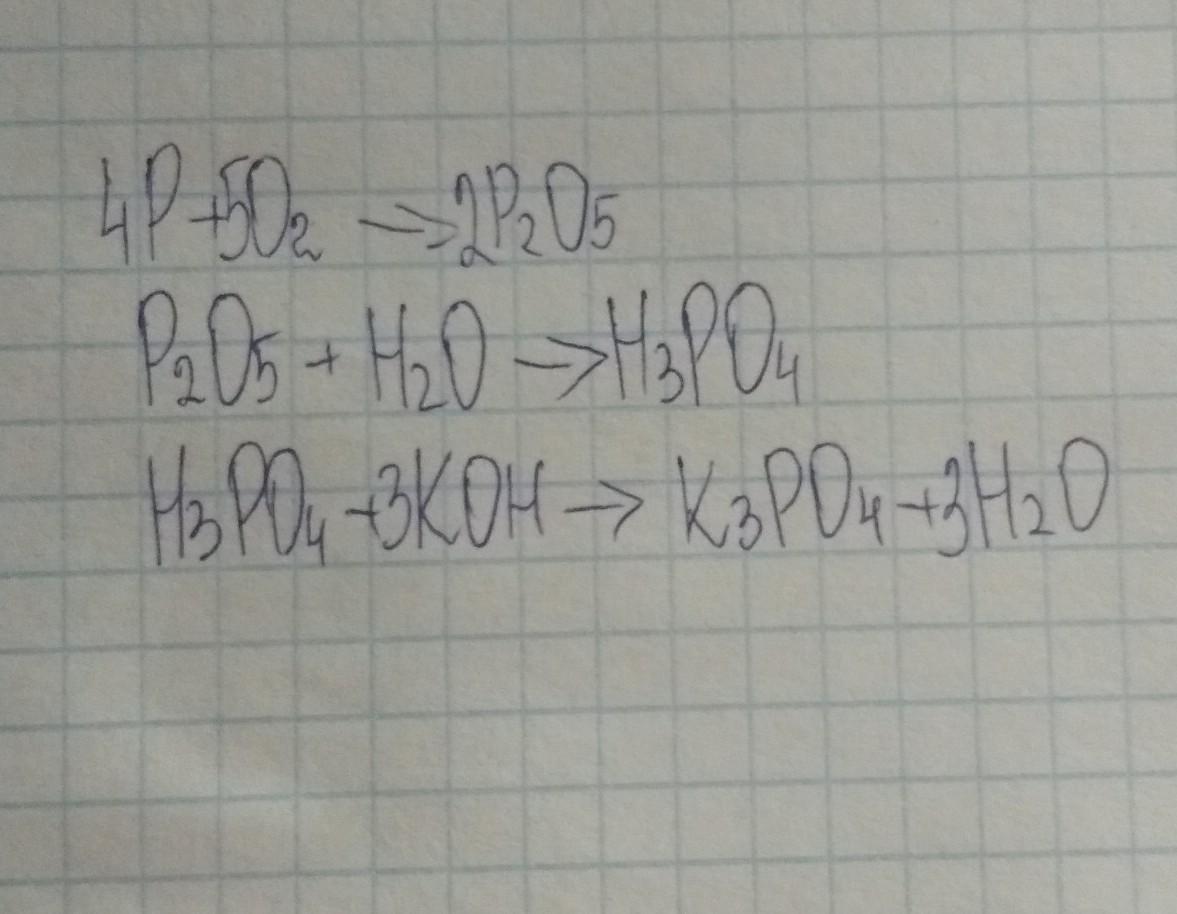 4P+5O₂ → 2P₂O₅
P₂O₅ + H₂O → H₃PO₄
H₃PO₄ + 3KOH → K₃PO₄ + 3H₂O